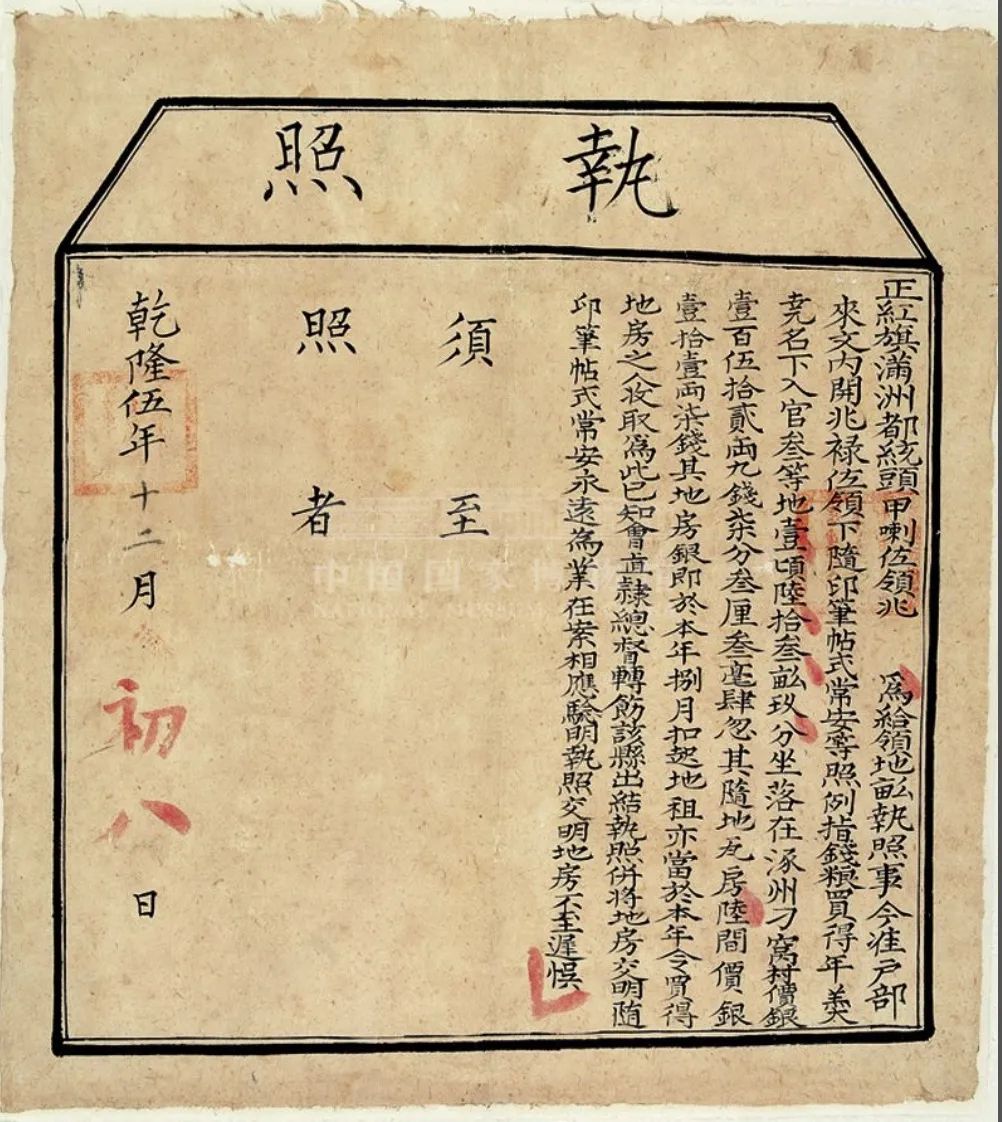 執照
正紅旗滿洲都統頭甲喇佐領兆 為給領地畝執照事今准戶部
來文內開兆祿佐領下隨印筆帖式常安等照例指錢粮買得年羹
堯名下入官叁等地壹頃陸拾叁畝玖分坐落在涿州刁窩村價銀
壹百伍拾貳両九錢柒分叁厘叁毫肆忽其隨地瓦房陸間價銀
壹拾壹両柒錢其地房銀即於本年捌月扣起地租亦當於本年令買得
地房之人收取為此已知會直隷總督轉飭該縣出結執照併将地房交明随
印筆帖式常安永遠為業在案相應驗明執照交明地房不至遲悞
須至
照者
乾隆伍年十二月初八日